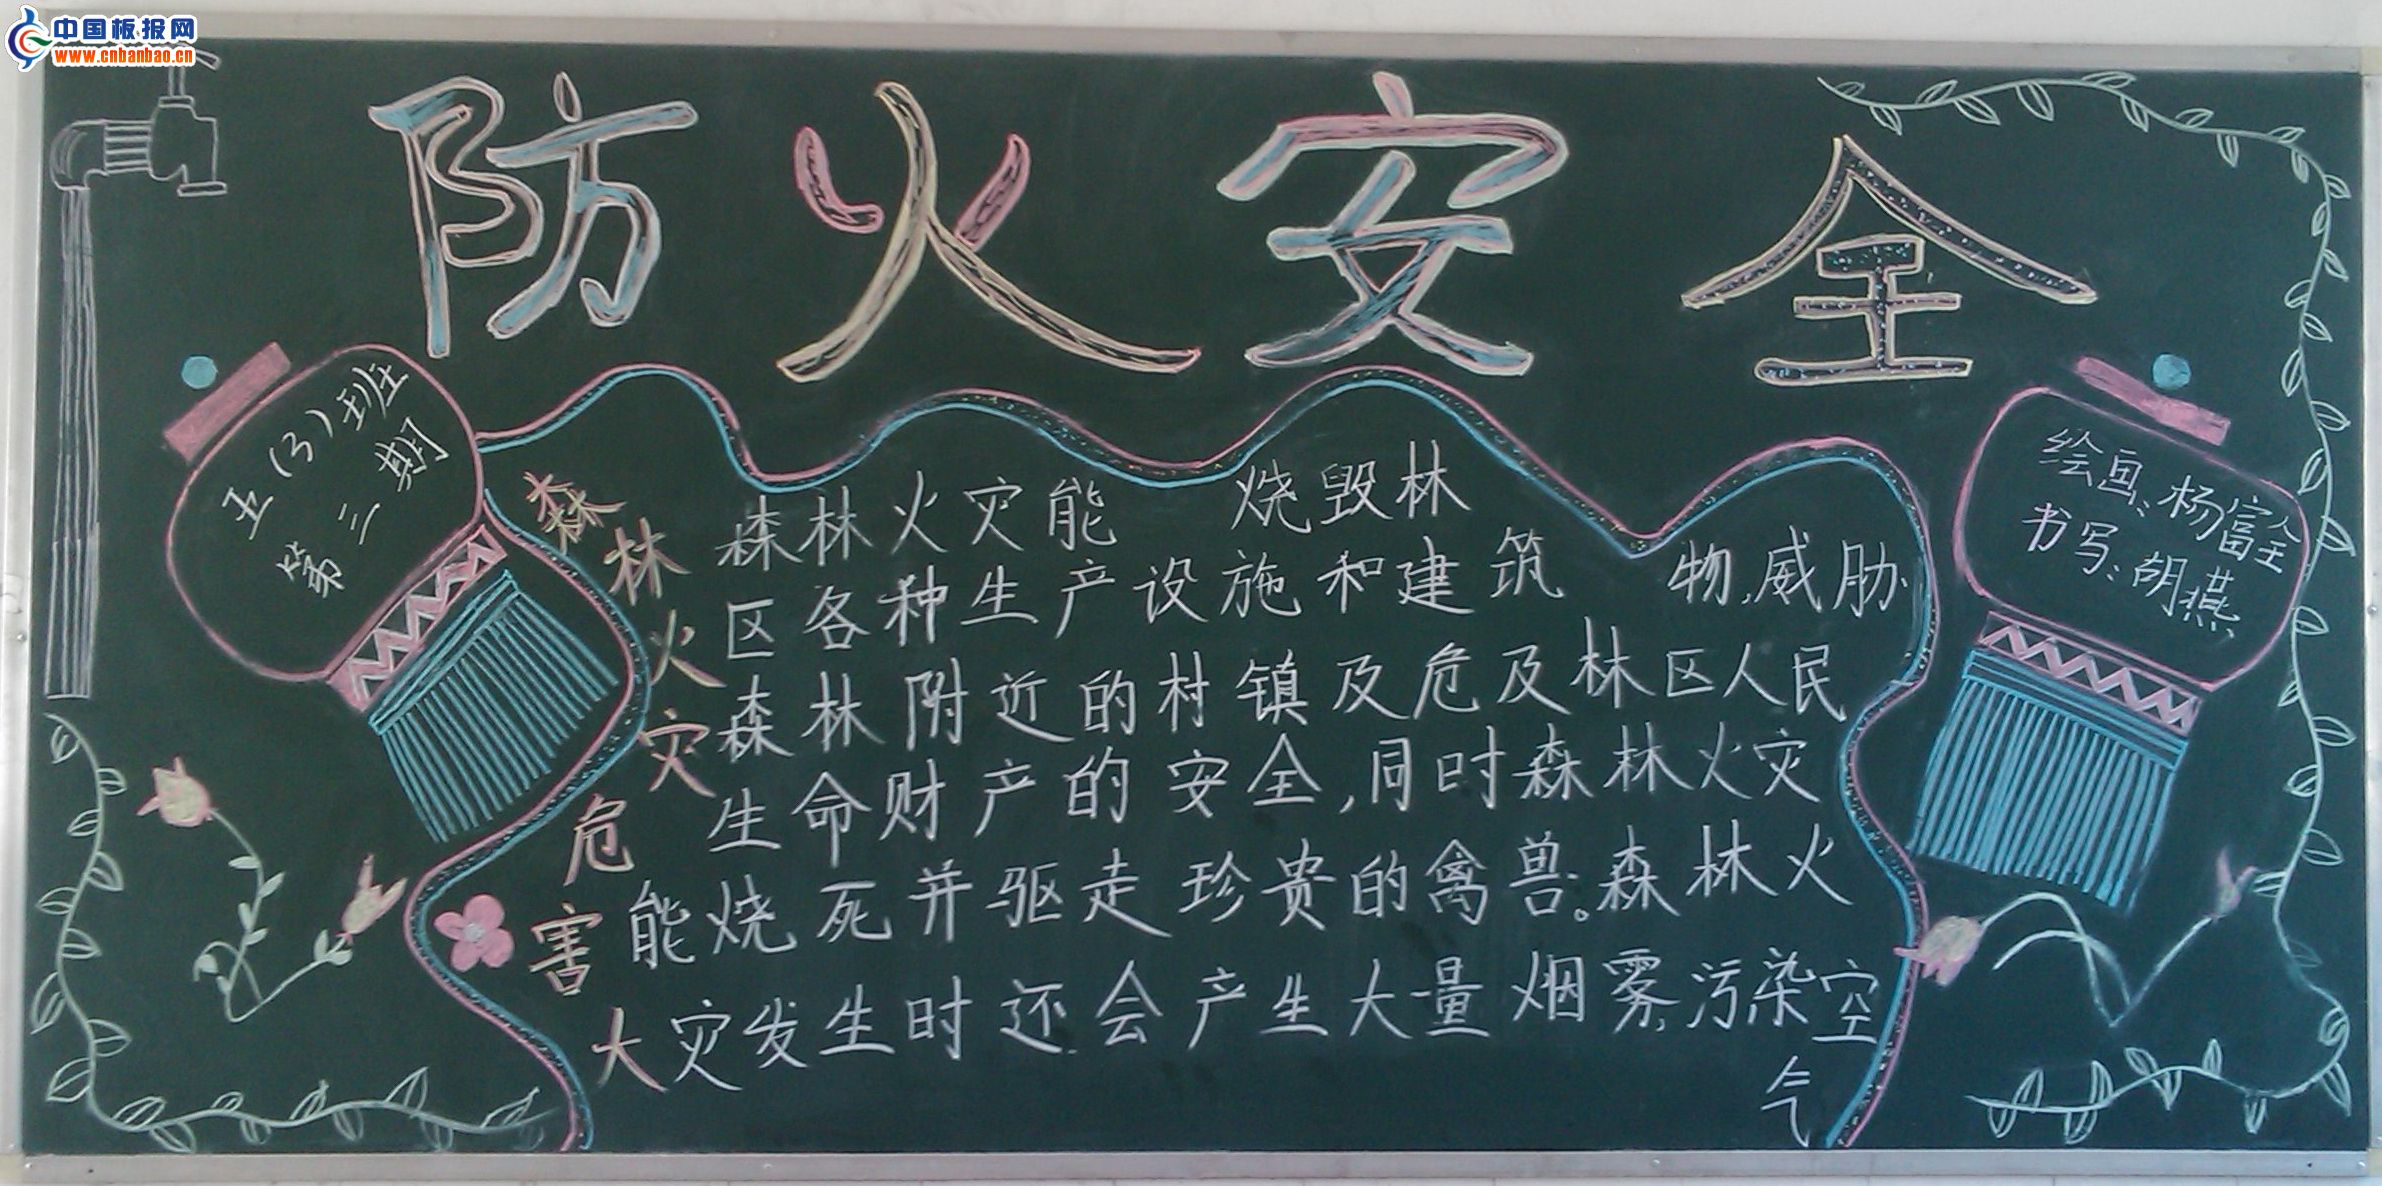 中国板报网
www.cnbanbao.cn
防火安全
五(3)班
第三期
绘画:杨富全
书写:胡燕
森林火灾危害大
森林火灾能 烧毁林
区各种生产设施和建筑 物,威胁
森林附近的村镇及危及林区人民
生命财产的安全,同时森林火灾
能烧死并驱走珍贵的禽兽。森林火
灾发生时还会产生大量烟雾,污染空
气